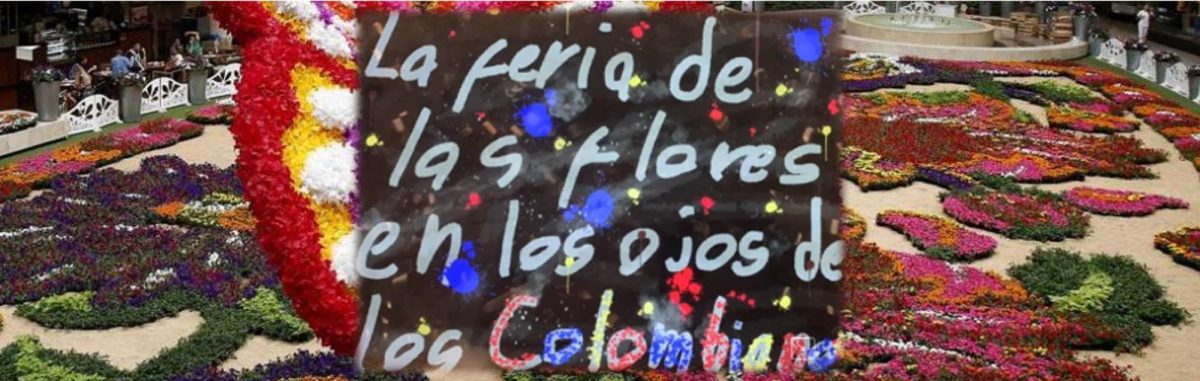 La feria de
las flores
en los ojos de
los Colombiano